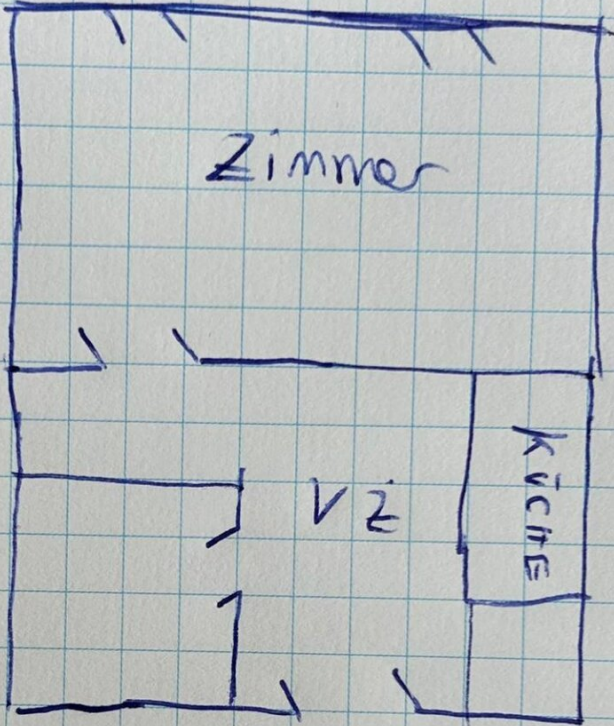 Zimmer
VZ
KÜCHE